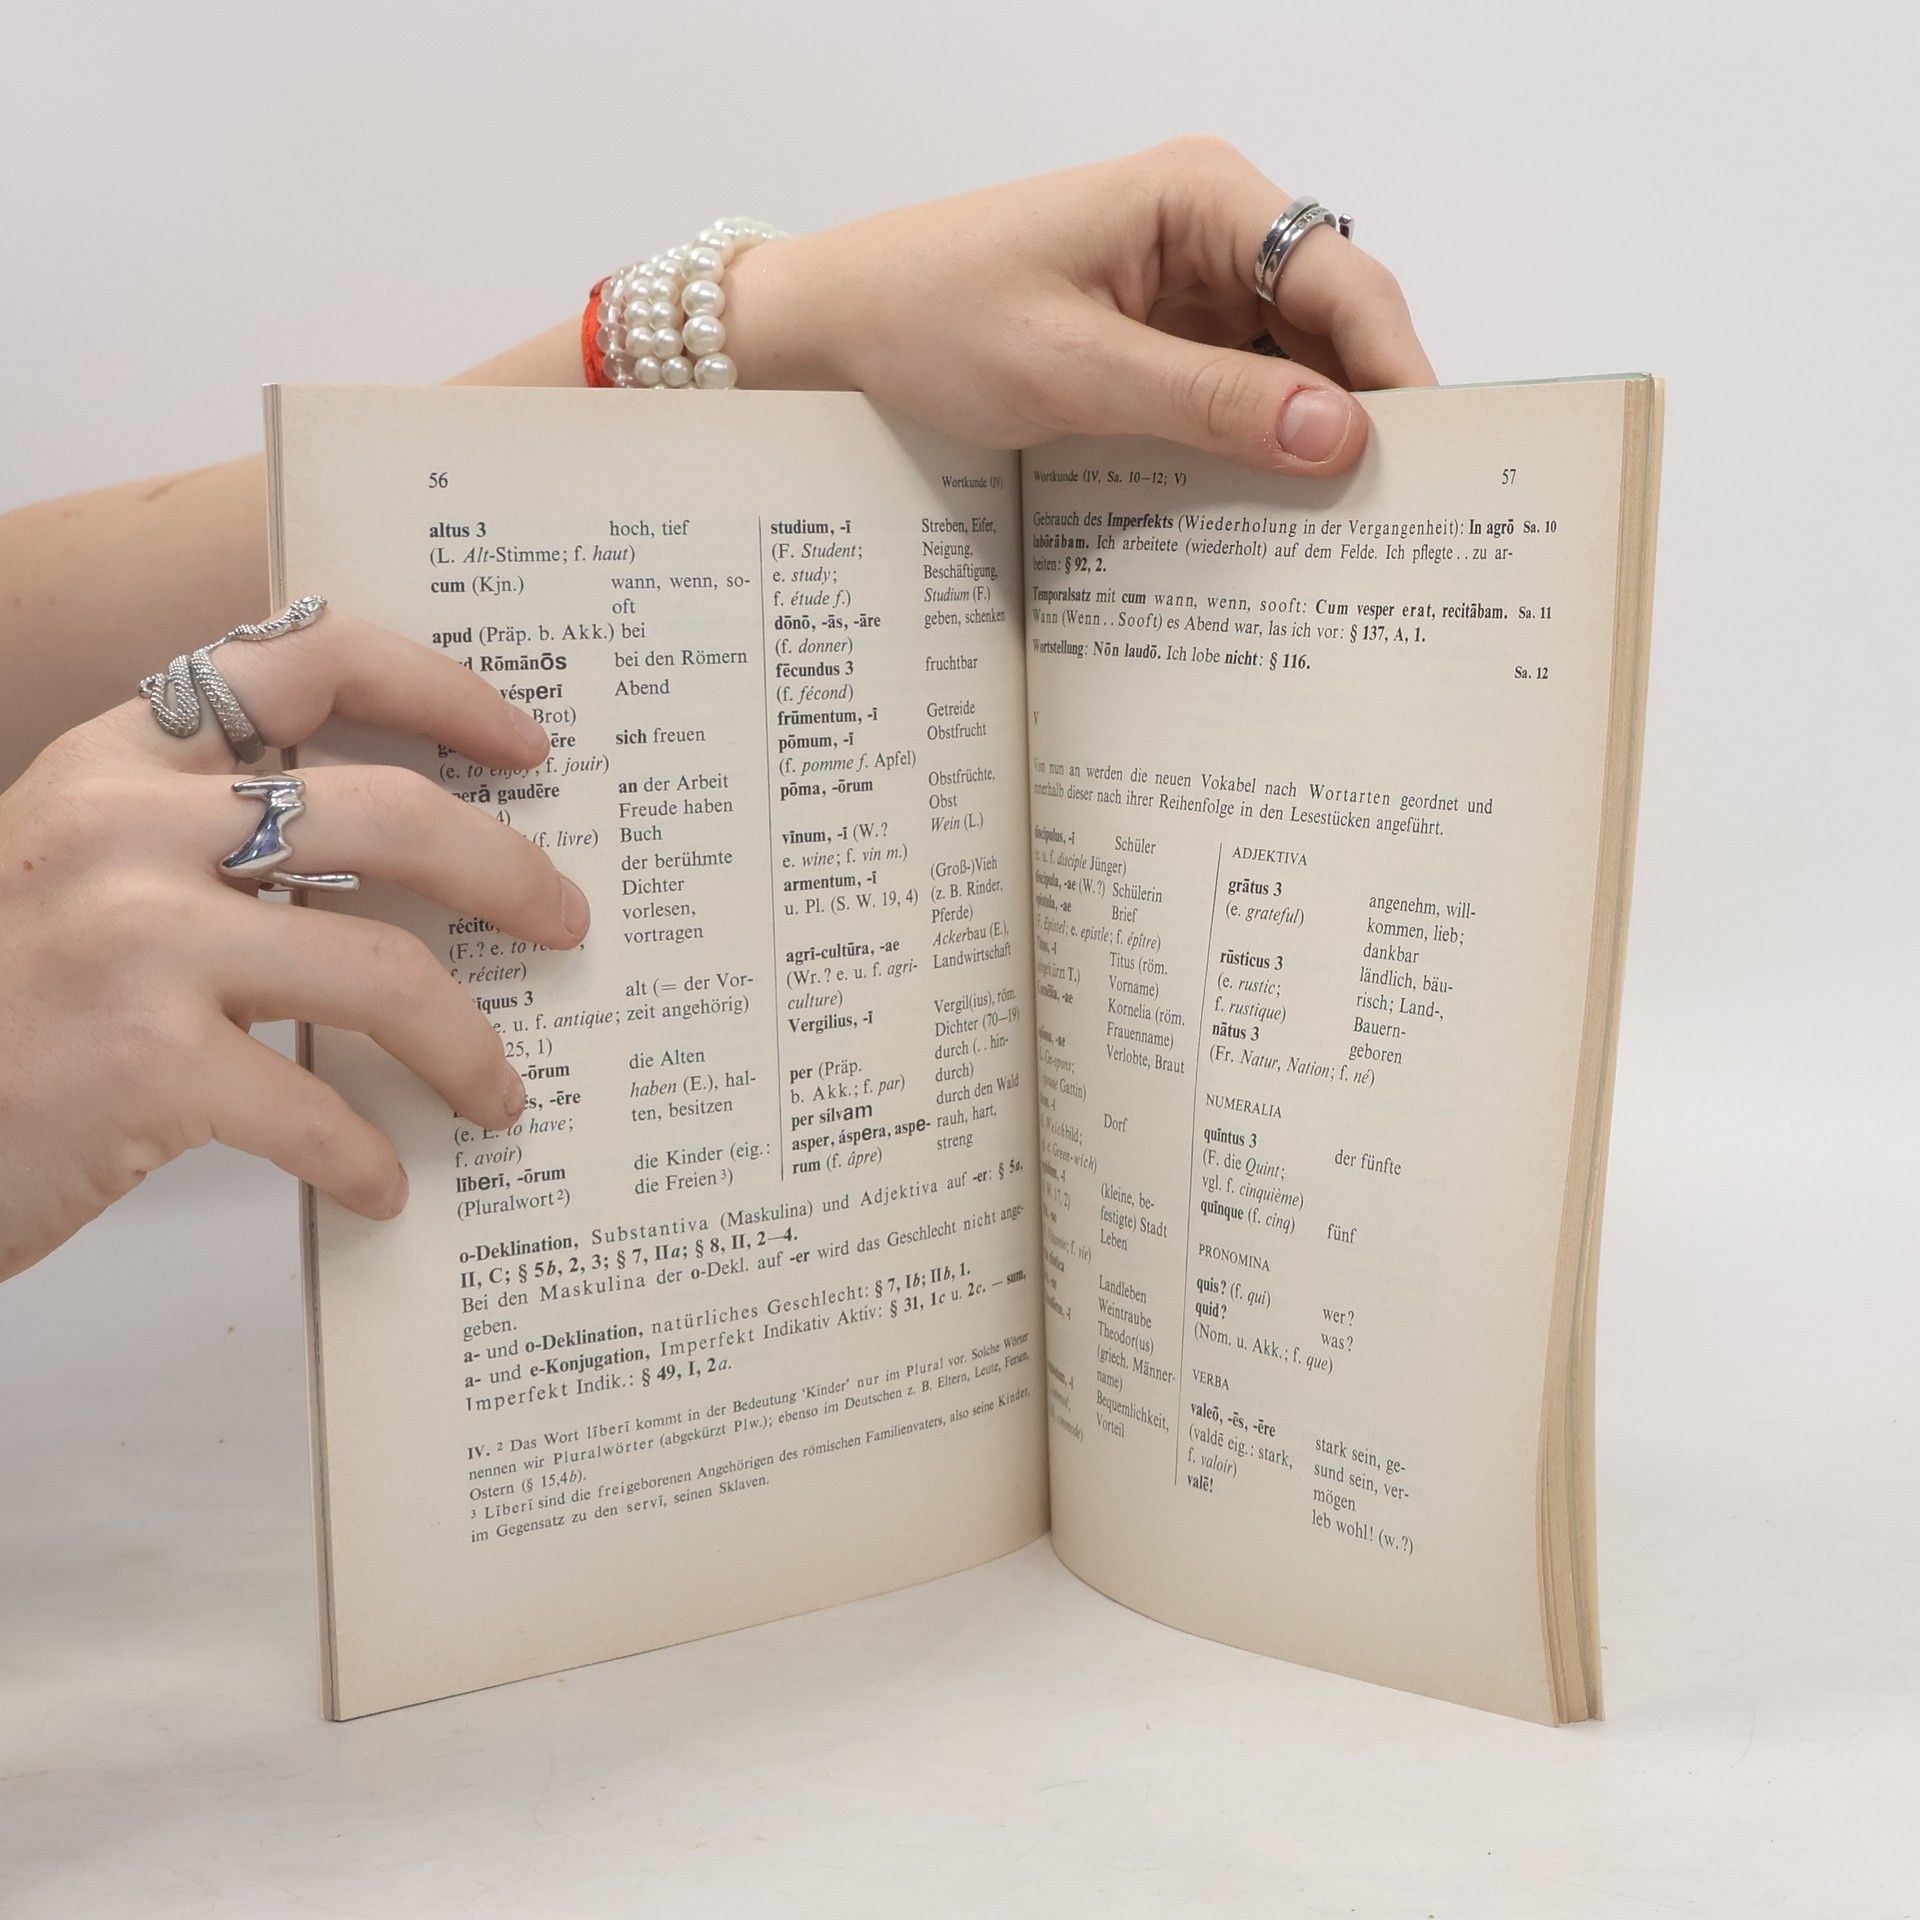 56
Wortkunde (IV)
altus 3 hoch, tief
(L. Alt-Stimme; f. haut)
cum (Kjn.) wann, wenn, so-
oft
apud (Präp. b. Akk.) bei
Rōmānōs bei den Römern
vésperī Abend
Brot)
ēre sich freuen
(e. to enjoy, f. jouir)
gaudēre an der Arbeit
4) Freude haben
(f. livre) Buch
der berühmte
Dichter
vorlesen,
récitō, vortragen
(F.? e. to
f. réciter)
íquus 3 alt (= der Vor-
e. u. f. antique; zeit angehörig)
25, 1)
-ōrum die Alten
-ēre haben (E.), hal-
(e. E. to have; ten, besitzen
f. avoir)
līberī, -ōrum die Kinder (eig.:
(Pluralwort²) die Freien³)
studium, -ī Streben, Eifer,
(F. Student; Neigung,
e. study; Beschäftigung,
f. étude f.) Studium (F.)
dōnō, -ās, -āre geben, schenken
(f. donner)
fēcundus 3 fruchtbar
(f. fécond)
frūmentum, -ī Getreide
pōmum, -ī Obstfrucht
(f. pomme f. Apfel)
pōma, -ōrum Obstfrüchte,
Obst
vīnum, -ī (W.? Wein (L.)
e. wine; f. vin m.)
armentum, -ī (Groß-)Vieh
u. Pl. (S. W. 19, 4) (z. B. Rinder,
Pferde)
agrī-cultūra, -ae Ackerbau (E.),
(Wr.? e. u. f. agri- Landwirtschaft
culture)
Vergilius, -ī Vergil(ius), röm.
Dichter (70—19)
per (Präp. durch (. . hin-
b. Akk.; f. par) durch)
per silvam durch den Wald
asper, áspera, aspe- rauh, hart,
rum (f. âpre) streng
o-Deklination, Substantiva (Maskulina) und Adjektiva auf -er: § 5a,
II, C; § 5b, 2, 3; § 7, IIa; § 8, II, 2—4.
Bei den Maskulina der o-Dekl. auf -er wird das Geschlecht nicht ange-
geben.
a- und o-Deklination, natürliches Geschlecht: § 7, Ib; IIb, 1.
a- und e-Konjugation, Imperfekt Indikativ Aktiv: § 31, 1c u. 2c. — sum,
Imperfekt Indik.: § 49, I, 2a.
IV. ² Das Wort līberī kommt in der Bedeutung 'Kinder' nur im Plural vor. Solche Wörter
nennen wir Pluralwörter (abgekürzt Plw.); ebenso im Deutschen z. B. Eltern, Leute, Ferien,
Ostern (§ 15,4b).
³ Līberī sind die freigeborenen Angehörigen des römischen Familienvaters, also seine Kinder,
im Gegensatz zu den servī, seinen Sklaven.
Wortkunde (IV, Sa. 10—12; V)
57
Gebrauch des Imperfekts (Wiederholung in der Vergangenheit): In agrō Sa. 10
labōrābam. Ich arbeitete (wiederholt) auf dem Felde. Ich pflegte . . zu ar-
beiten: § 92, 2.
Temporalsatz mit cum wann, wenn, sooft: Cum vesper erat, recitābam. Sa. 11
Wann (Wenn . . Sooft) es Abend war, las ich vor: § 137, A, 1.
Wortstellung: Nōn laudō. Ich lobe nicht: § 116.
Sa. 12
V
Von nun an werden die neuen Vokabel nach Wortarten geordnet und
innerhalb dieser nach ihrer Reihenfolge in den Lesestücken angeführt.
discipulus, -ī Schüler
e. u. f. disciple Jünger)
discipula, -ae (W.?) Schülerin
epistula, -ae Brief
Epistel; e. epistle; f. épître)
Titus, -ī Titus (röm.
abgekürzt T.) Vorname)
Cornēlia, -ae Kornelia (röm.
Frauenname)
-ae Verlobte, Braut
Gattin)
Dorf
Weichbild;
Green-wich)
(kleine, be-
festigte) Stadt
Leben
f. vie)
Landleben
Weintraube
Theodor(us)
(griech. Männer-
name)
Bequemlichkeit,
Vorteil
ADJEKTIVA
grātus 3 angenehm, will-
(e. grateful) kommen, lieb;
dankbar
rūsticus 3 ländlich, bäu-
(e. rustic; risch; Land-,
f. rustique) Bauern-
nātus 3 geboren
(Fr. Natur, Nation; f. né)
NUMERALIA
quīntus 3 der fünfte
(F. die Quint;
vgl. f. cinquième)
quīnque (f. cinq) fünf
PRONOMINA
quis? (f. qui) wer?
quid? was?
(Nom. u. Akk.; f. que)
VERBA
valeō, -ēs, -ēre stark sein, ge-
(valdē eig.: stark, sund sein, ver-
f. valoir) mögen
valē! leb wohl! (w.?)